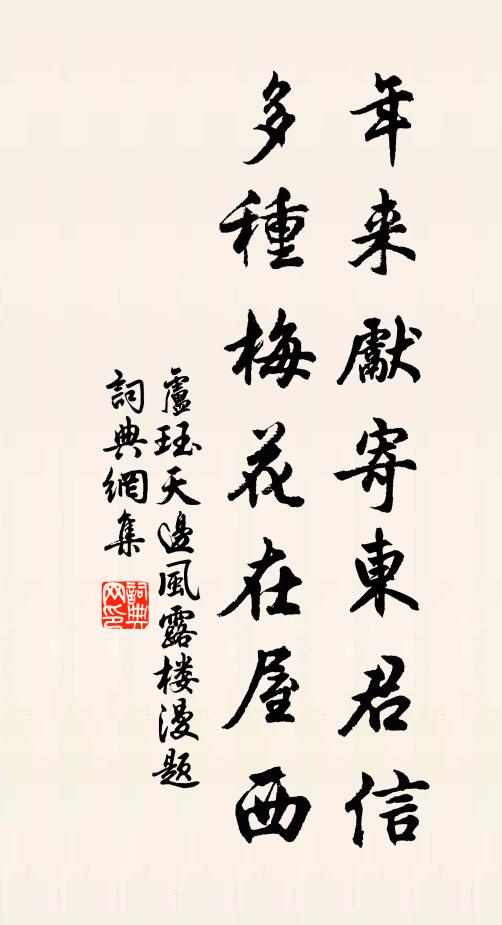 年来獻寄東君信
多種梅花在屋西
盧珏天邊風露楼漫題
詞典網集
詞典
网印